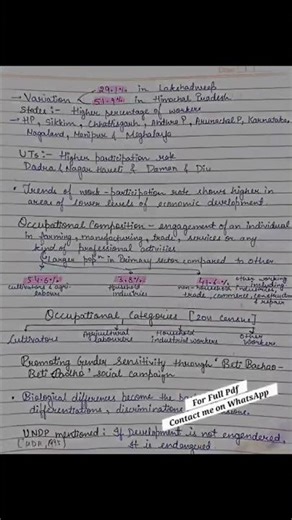 → Variation 29.1% in Lakshadweep
51.9% in Himachal Pradesh
States :- Higher percentage of workers
→ HP, Sikkim, Chhattisgarh, Andhra P, Arunachal P, Karnataka,
Nagaland, Manipur & Meghalaya
UTs :- Higher participation rate
Dadra & Nagar Haveli & Daman & Diu
• Trends of work-participation rate shows higher in
areas of lower levels of economic development
Occupational Composition - engagement of an individual
in farming, manufacturing, trade, services or any
kind of professional activities
Larger popn in Primary sector compared to other
54.6% 3.8% 41.6% other working
cultivators & agri- Household non-household industries, including
labours industries trade, commerce, construction
& repair
Occupational Categories [2011 census]
Cultivators Agricultural Labourers Household industrial workers Other Workers
Promoting Gender Sensitivity through 'Beti Bachao-
Beti Padhao' social campaign
• Biological differences become the
differentiations, discriminations
UNDP mentioned : If Development is not engendered,
It is endangered
For Full Pdf
Contact me on WhatsApp